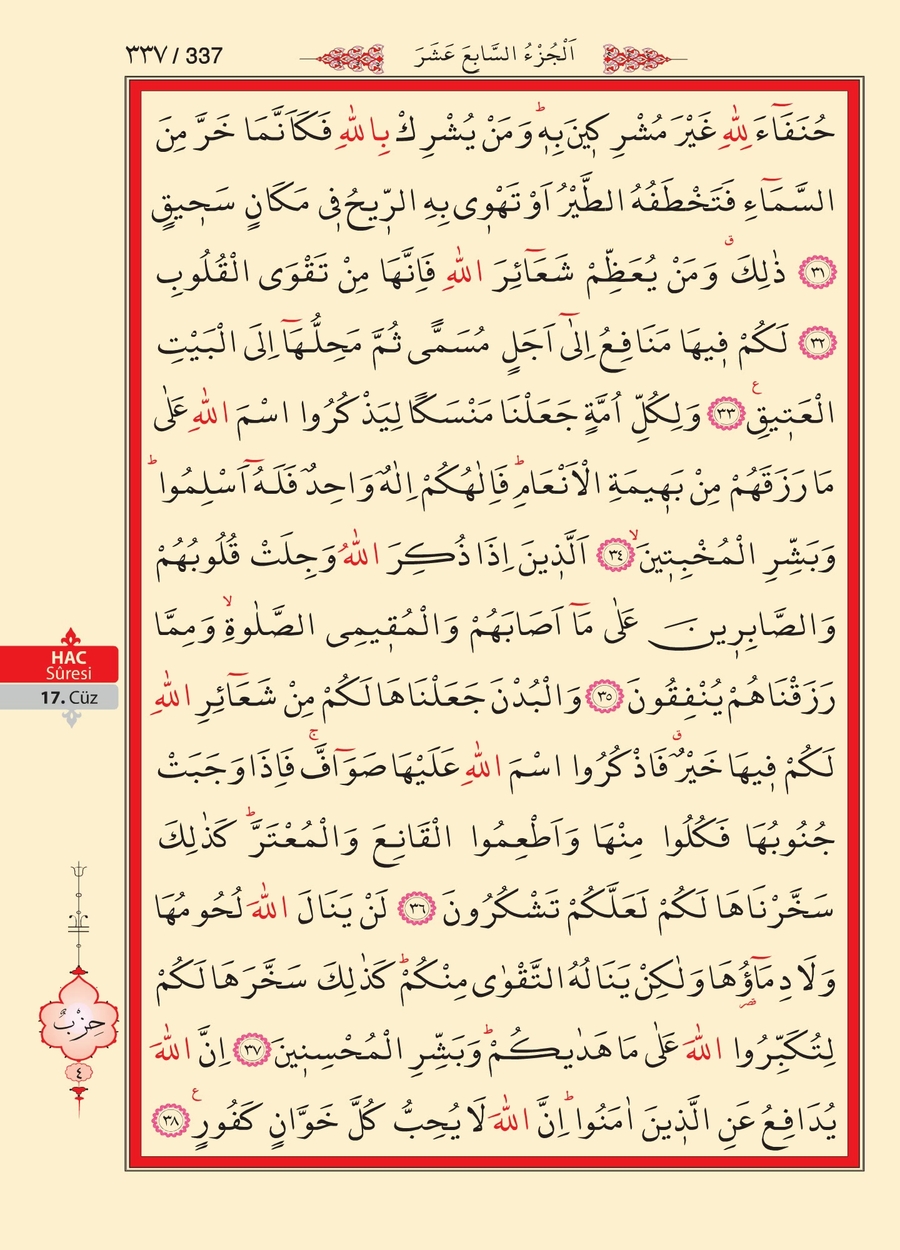 ٣٣٧ / 337
اَلْجُزْءُ السَّابِعَ عَشَرَ
حُنَفَٓاءَ لِلّٰهِ غَيْرَ مُشْرِك۪ينَ بِه۪ۜ وَمَنْ يُشْرِكْ بِاللّٰهِ فَكَاَنَّمَا خَرَّ مِنَ
السَّمَٓاءِ فَتَخْطَفُهُ الطَّيْرُ اَوْ تَهْو۪ى بِهِ الرّ۪يحُ ف۪ى مَكَانٍ سَح۪يقٍ
﴿٣١﴾ ذٰلِكَۗ وَمَنْ يُعَظِّمْ شَعَٓائِرَ اللّٰهِ فَاِنَّهَا مِنْ تَقْوَى الْقُلُوبِ
﴿٣٢﴾ لَكُمْ ف۪يهَا مَنَافِعُ اِلٰٓى اَجَلٍ مُسَمًّى ثُمَّ مَحِلُّهَٓا اِلَى الْبَيْتِ
الْعَت۪يقِ۟ ﴿٣٣﴾ وَلِكُلِّ اُمَّةٍ جَعَلْنَا مَنْسَكًا لِيَذْكُرُوا اسْمَ اللّٰهِ عَلٰى
مَا رَزَقَهُمْ مِنْ بَه۪يمَةِ الْاَنْعَامِۜ فَاِلٰهُكُمْ اِلٰهٌ وَاحِدٌ فَلَهُٓ اَسْلِمُواۜ
وَبَشِّرِ الْمُخْبِت۪ينَۙ ﴿٣٤﴾ اَلَّذ۪ينَ اِذَا ذُكِرَ اللّٰهُ وَجِلَتْ قُلُوبُهُمْ
وَالصَّابِر۪ينَ عَلٰى مَٓا اَصَابَهُمْ وَالْمُق۪يمِى الصَّلٰوةِۙ وَمِمَّا
رَزَقْنَاهُمْ يُنْفِقُونَ ﴿٣٥﴾ وَالْبُدْنَ جَعَلْنَاهَا لَكُمْ مِنْ شَعَٓائِرِ اللّٰهِ
لَكُمْ ف۪يهَا خَيْرٌۗ فَاذْكُرُوا اسْمَ اللّٰهِ عَلَيْهَا صَوَٓافَّۚ فَاِذَا وَجَبَتْ
جُنُوبُهَا فَكُلُوا مِنْهَا وَاَطْعِمُوا الْقَانِعَ وَالْمُعْتَرَّۜ كَذٰلِكَ
سَخَّرْنَاهَا لَكُمْ لَعَلَّكُمْ تَشْكُرُونَ ﴿٣٦﴾ لَنْ يَنَالَ اللّٰهَ لُحُومُهَا
وَلَا دِمَٓاؤُ۬هَا وَلٰكِنْ يَنَالُهُ التَّقْوٰى مِنْكُمْۜ كَذٰلِكَ سَخَّرَهَا لَكُمْ
لِتُكَبِّرُوا اللّٰهَ عَلٰى مَا هَدٰيكُمْۜ وَبَشِّرِ الْمُحْسِن۪ينَ ﴿٣٧﴾ اِنَّ اللّٰهَ
يُدَافِعُ عَنِ الَّذ۪ينَ اٰمَنُواۜ اِنَّ اللّٰهَ لَا يُحِبُّ كُلَّ خَوَّانٍ كَفُورٍ۟ ﴿٣٨﴾
HAC
Sûresi
17. Cüz
حِزْبٌ
٤